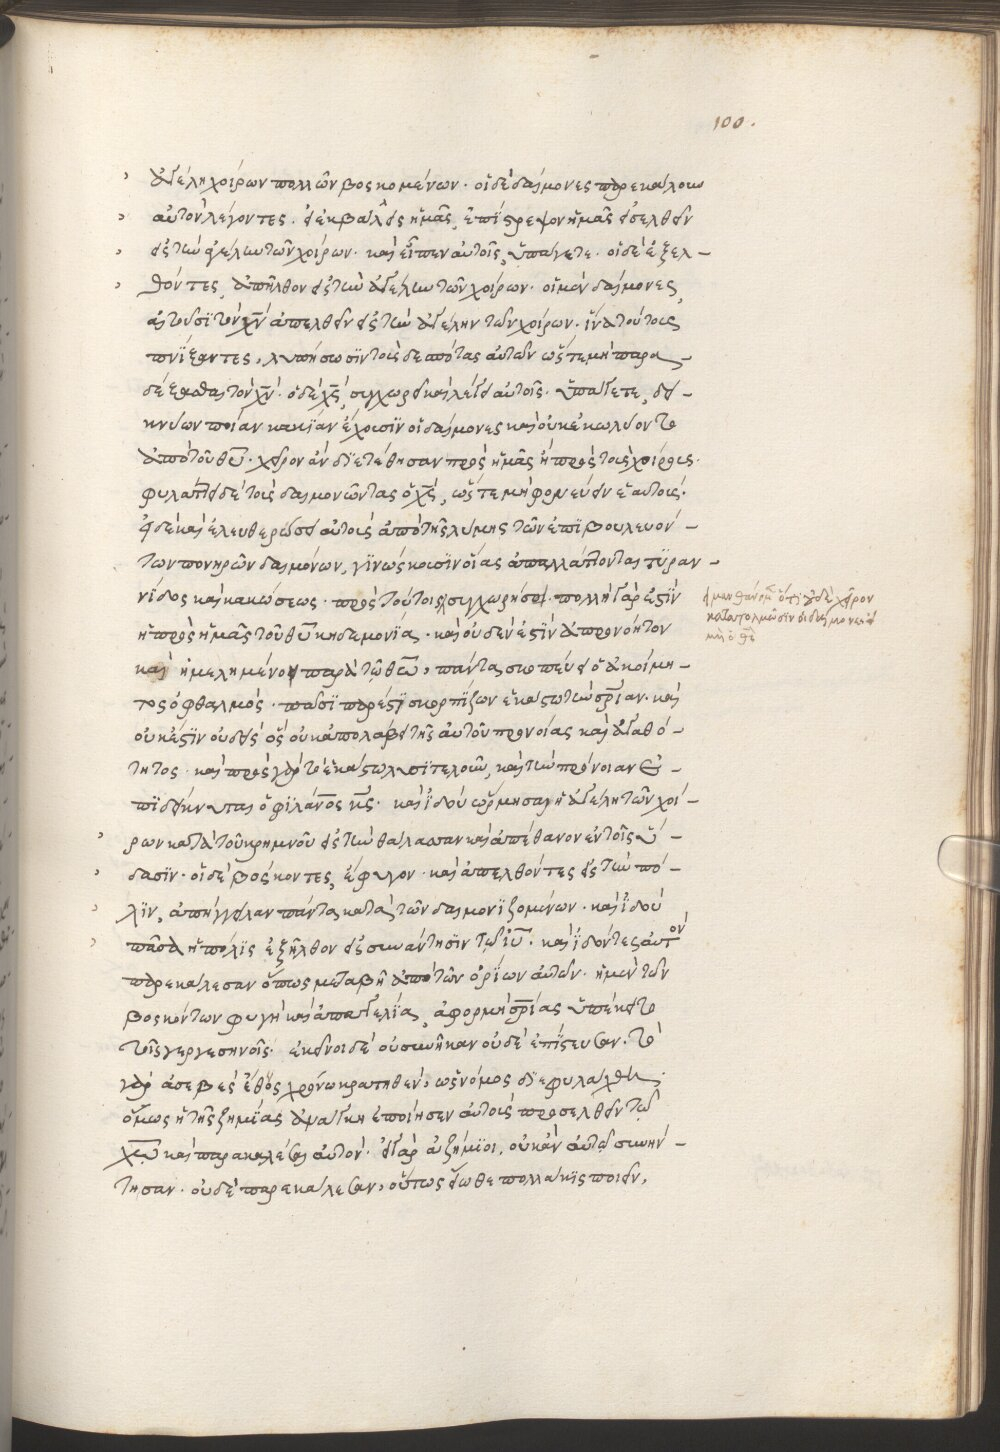 100.
ἀγέλη χοίρων πολλῶν βοσκομένων· οἱ δὲ δαίμονες παρεκάλουν
αὐτὸν λέγοντες· εἰ ἐκβάλλεις ἡμᾶς, ἐπίτρεψον ἡμᾶς εἰσελθεῖν
εἰς τὴν ἀγέλην τῶν χοίρων· καὶ εἶπεν αὐτοῖς, ὑπάγετε· οἱ δὲ ἐξελ-
θόντες, ἀπῆλθον εἰς τὴν ἀγέλην τῶν χοίρων· οἱ μὲν δαίμονες,
αἰτοῦσϊ τὸν χ̅ν̅ ἀπελθεῖν εἰς τὴν ἀγέλην τῶν χοίρων· ἵνα τούτους
πνίξαντες, λυπήσωσϊν τοὺς δεσπότας αὐτῶν ὥστε μὴ παρα-
δέξασθαι τὸν χ̅ν̅· ὁ δὲ χ̅ς̅, συγχωρεῖ καὶ λέγει αὐτοῖς· ὑπάγετε, δει-
κνύων ποίαν κακίαν ἔχουσϊν οἱ δαίμονες καὶ οὐκ ἐκωλύοντο
ἀπὸ τοῦ θ̅υ̅· χεῖρον ἂν διετέθησαν πρὸς ἡμᾶς ἢ πρὸς τοὺς χοίρους·
φυλάττει δὲ τοὺς δαιμονῶντας ὁ χ̅ς̅, ὥστε μὴ φονεύειν ἑαυτούς·
δὲ καὶ ἐλευθερώσει αὐτοὺς ἀπὸ τῆς λύμης τῶν ἐπϊβουλευόν-
των πονηρῶν δαιμόνων, γϊνώσκουσϊν οἵας ἀπαλλάττονται τυραν-
νίδος καὶ κακώσεως· πρὸς τούτοις συγχωρήσει· πολλὴ γάρ ἐστϊν
ἡ πρὸς ἡμᾶς τοῦ θ̅υ̅ κηδεμονία· καὶ οὐδέν ἐστϊν ἀπρονόητον
καὶ ἠμελημένον παρὰ τῷ θ̅ω̅, πάντα σκοπεύει ὁ ἀκοίμη-
τος ὀφθαλμός· πᾶσϊ πάρεστϊ σκορπίζων ἑκάστῳ τὴν σ̅ρ̅ίαν· καὶ
οὐκ ἔστϊν οὐδεὶς ὃς οὐκ ἀπολαύει τῆς αὐτοῦ προνοίας καὶ ἀγαθό-
τητος· καὶ πρὸς γὰρ τὸ ἑκάστῳ λυσιτελοῦν, καὶ τὴν πρόνοιαν ἐ-
πϊδείκνυται ὁ φϊλάν̅ο̅ς κ̅ς̅· καὶ ἰδοὺ ὥρμησαν ἡ ἀγέλη τῶν χοί-
ρων κατὰ τοῦ κρημνοῦ εἰς τὴν θάλασσαν καὶ ἀπέθανον ἐν τοῖς ὕ-
δασϊν· οἱ δὲ βόσκοντες, ἔφυγον· καὶ ἀπελθόντες εἰς τὴν πό-
λϊν, ἀπήγγειλαν πάντα κατὰ τῶν δαιμονϊζομένων· καὶ ἰδοὺ
πᾶσα ἡ πόλϊς ἐξῆλθον εἰς συνάντησϊν τῷ ἰ̅υ̅· καὶ ἰδόντες αὐτὸν
παρεκάλεσαν ὅπως μεταβῇ ἀπὸ τῶν ὁρίων αὐτῶν· ἡ μὲν τῶν
βοσκόντων φυγὴ καὶ ἀπαγγελία, ἀφορμὴ σ̅ρ̅ίας ὑπέκειτο
τοῖς γεργεσηνοῖς· ἐκεῖνοι δὲ οὐ συνῆκαν οὐδὲ ἐπίστευσαν· τὸ
γὰρ ἀσεβὲς ἔθος χρόνῳ κρατηθέν, ὡς νόμος διεφυλάχθη·
ὅμως ἡ τῆς ζημίας ἀνάγκη ἐποίησεν αὐτοὺς προσελθεῖν τῷ
χ̅ω̅ καὶ παρακαλέσαι αὐτόν· εἰ γὰρ ἀζήμϊοι, οὐκ ἂν αὐτῷ συνήν-
τησαν· οὐδὲ παρεκάλεσαν, οὕτως εἴωθε πολλάκϊς ποιεῖν,
μανθάνομεν ὅτι οὐδὲ χοῖρον
κατατολμῶσϊν οἱ δαίμονες εἰ
μὴ ὁ θ̅ς̅